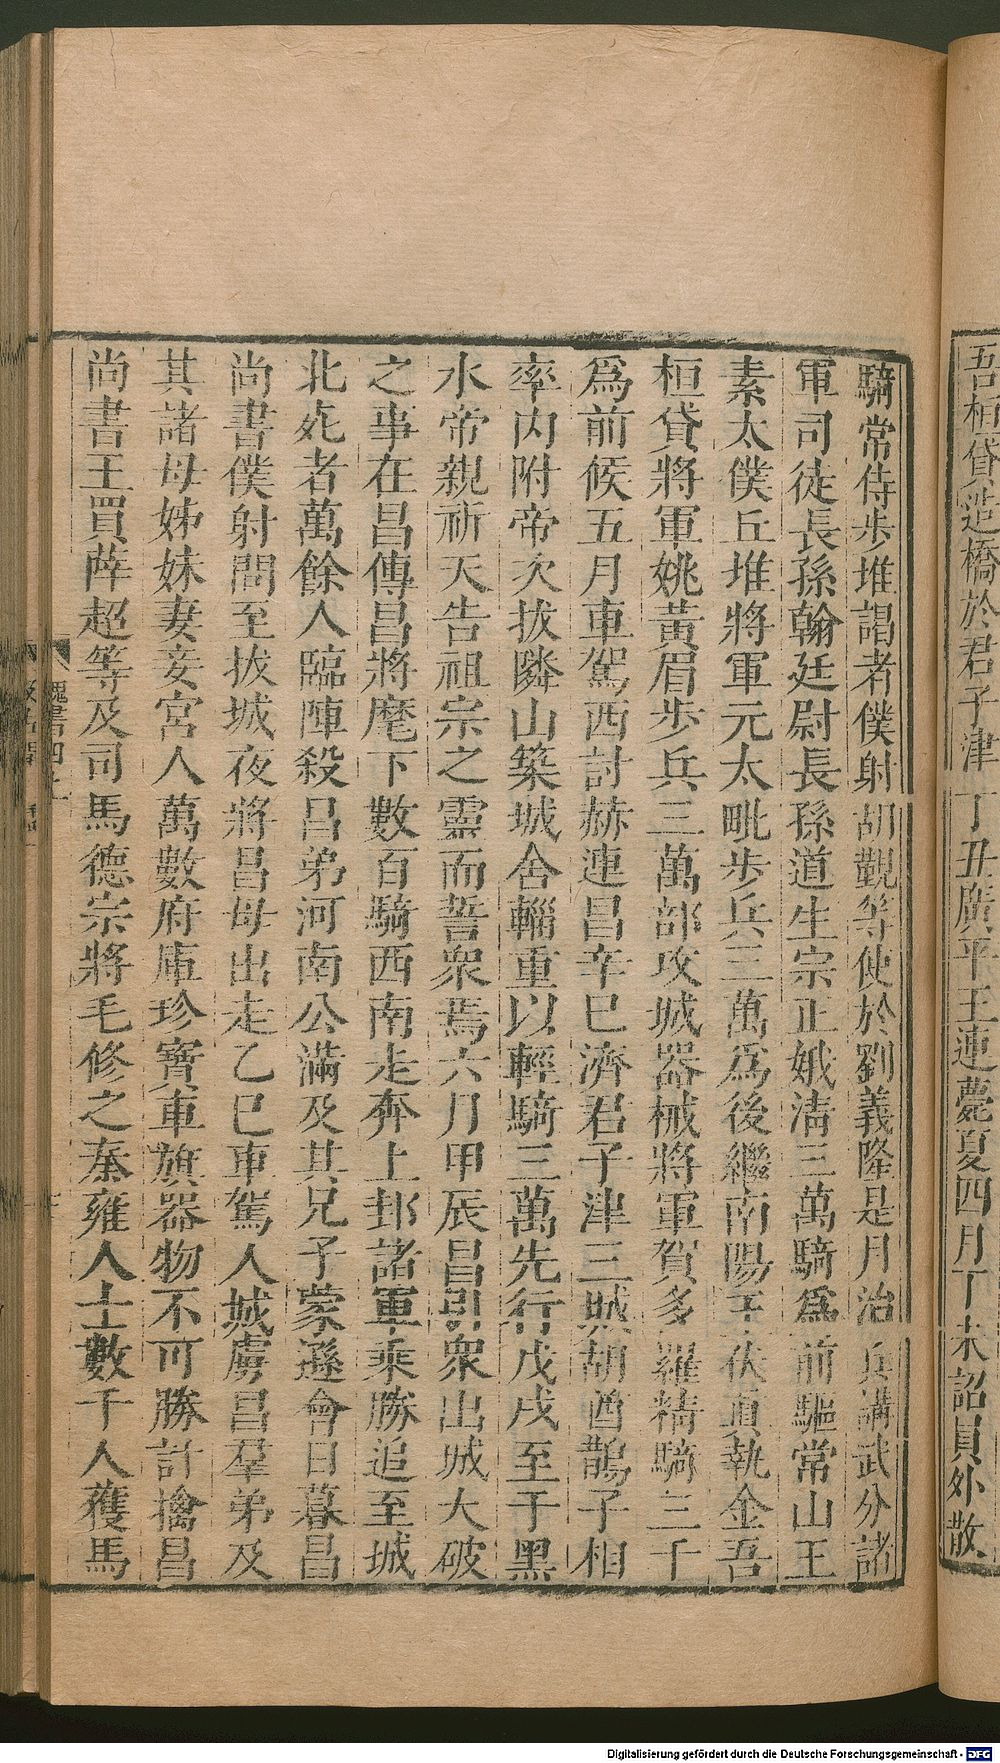 吾桓貸造橋於君子津丁丑廣平王連薨夏四月丁未詔員外散
騎常侍步堆謁者僕射胡覲等使於劉義隆是月治兵講武分諸
軍司徒長孫翰廷尉長孫道生宗正娥淸三萬騎爲前驅常山王
素太僕丘堆將軍元太毗步兵三萬爲後繼南陽王伏眞執金吾
桓貸將軍姚黃眉步兵三萬部攻城器械將軍賀多羅精騎三千
爲前候五月車駕西討赫連昌辛巳濟君子津三城胡酋鵲子相
率內附帝次拔隣山築城舍輜重以輕騎三萬先行戊戌至于黑
水帝親祈天告祖宗之靈而誓衆焉六月甲辰昌引衆出城大破
之事在昌傳昌將麾下數百騎西南走奔上邽諸軍乘勝追至城
北死者萬餘人臨陣殺昌弟河南公滿及其兄子蒙遜會日暮昌
尚書僕射問至拔城夜將昌母出走乙巳車駕入城虜昌羣弟及
其諸母姊妹妻妾宮人萬數府庫珍寶車旗器物不可勝計擒昌
尚書王買薛超等及司馬德宗將毛修之秦雍人士數千人獲馬
魏書四上
Digitalisierung gefördert durch die Deutsche Forschungsgemeinschaft - DFG